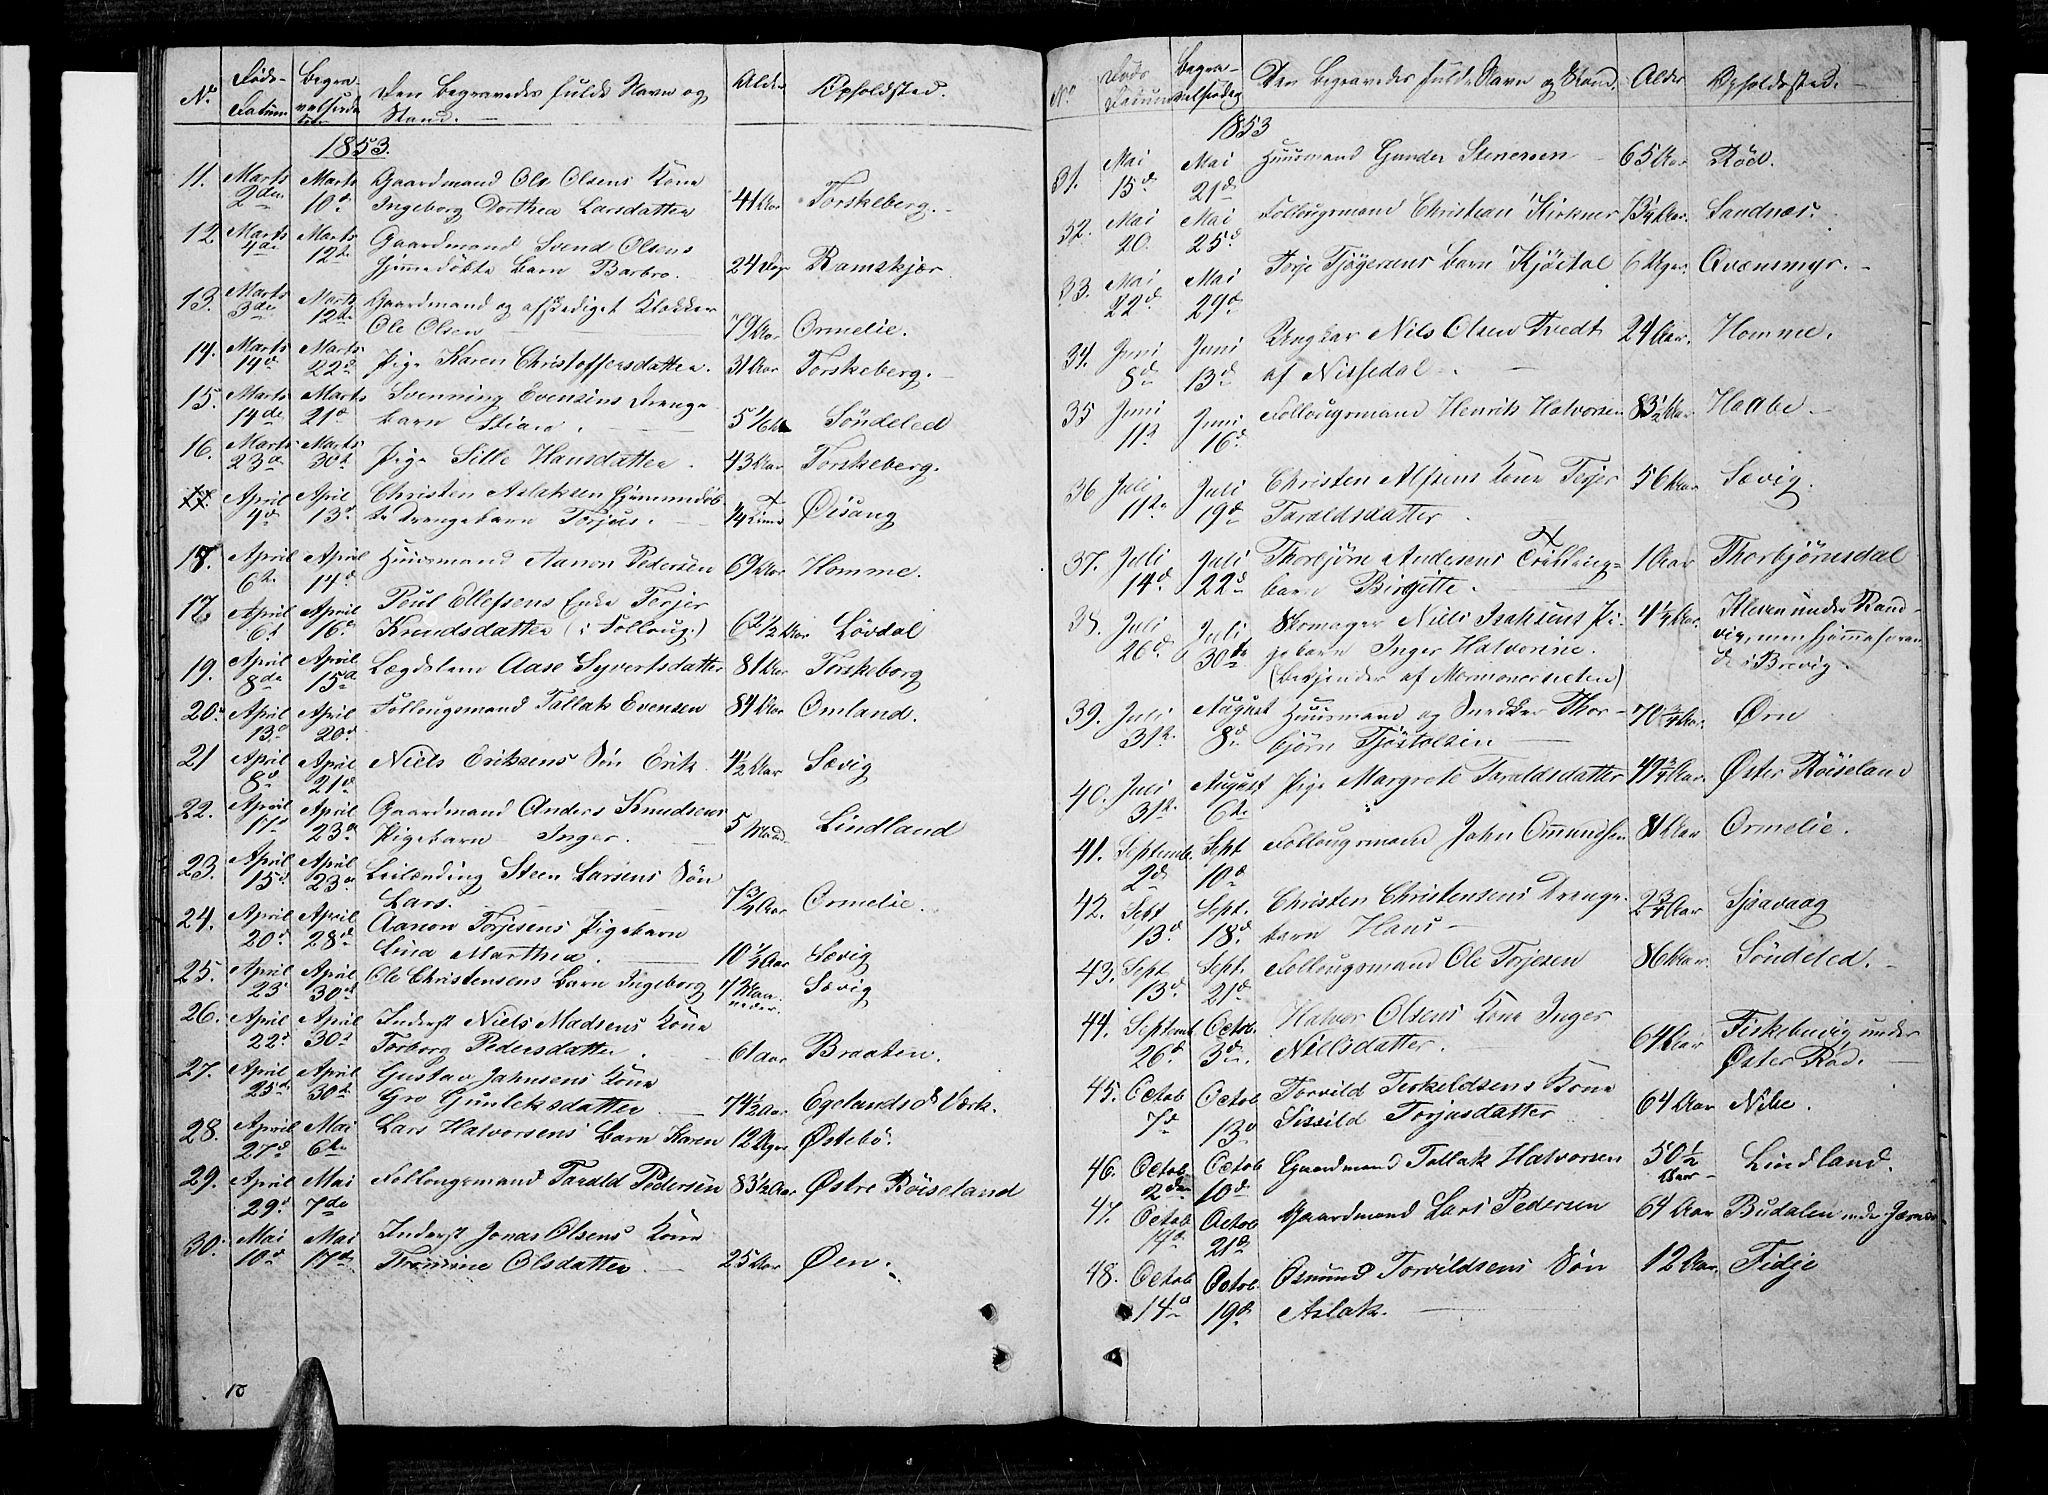 No. Døds- Datum Begra- velsesda- tum Den Begravedes fulde Navn og Stand. Alder Opholdsted.
1853.
11. Marts 2den Marts 10d Gaardmand Ole Olsens Kone
Ingeborg Dorthea Larsdatter 41 Aar Torskeberg.
12. Marts 4de Marts 12te Gaardmand Svend Olsens
hjemmedøbte barn Barbro. 24 Dage Ramskjær
13. Marts 3de Marts 12te Gaardmand og afskediget Klokker
Ole Olsen 79 Aar Ormelie.
14. Marts 14d Marts 22d Pige Karen Christoffersdatter. 31 Aar Torskeberg.
15. Marts 14de Marts 21d Svenning Evensens Drenge-
barn Stian. 5 1/6 Søndeled
16. Marts 23d Marts 30t Pige Sille Hansdatter. 43 Aar Torskeberg.
17. April 4d April 13d Christen Aslaksen hjemmedøb-
te Drengebarn Torjus. 1/4 Time Øisang
18. April 6t April 14d Huusmand Aanon Pedersen 69 Aar Homme.
17. April 6t April 16d Poul Ellefsens Enke Terjer
Knudsdatter (i Follaug.) 62 1/2 Aar Løvdal
19. April 8de April 15d Lægdslem Aase Syvertsdatter 81 Aar Torskeberg
20. April 13d April 20d Follougsmand Tallak Evensen 84 Aar Omland.
21 April 8d April 21d Niels Eriksens Søn Erik 4 1/2 Aar Sævig
22. April 17d April 23d Gaardmand Anders Knudsens
Pigebarn Inger. 5 Maad. Lindland
23. April 15d April 23d Leilænding Steen Larsens Søn
Lars. 7 3/4 Aar Ormelie.
24. April 20d April 28d Aanon Torjesens Pigebarn
Lina Marthea. 10 1/2 Aar Sævig
25. April 23d April 30t Ole Christensens barn Ingeborg 7 Maa-
neder. Sævig
26. April 22d April 30t Inderst Niels Madsens Kone
Torborg Pedersdatter. 61 aar Braaten.
27. April 25d April 30t Gustav Jahnsens Kone
Gro Gunleksdatter 74 1/2 Aar Egelands Værk.
28. April 27d Mai 6te Lars Halvorsens barn Karen 12 Uger Østebø.
29. April 29d Mai 7de Follougsmand Tarald Pedersen 83 1/2 Aar Østre Røiseland
30. Mai 10d Mai 17de Inderst Jonas Olsens Kone
Thomine Olsdatter 25 Aar Øen.
10
No. Døds Datum Begra- velsesdag Den Begravedes fulde Navn og Stand. Alder Opholdssted.
1853
31. Mai 15d Mai 21d Huusmand Gunder Stenersen 65 Aar Rød.
32. Mai 20. Mai 25d Follougsmand Christian Kirkner Aar. Sandnæs.
33. Mai 22d Mai 29d Terje Tjøgersens barn Kjøstol 6 Uger. Avensmyr.
34. Juni 8d Juni 13d Ungkar Nils Olsen Tvedt
af Nissedal 24 Aar. Homme.
35 Juni 11t Juni 16d Follougsmand Henrik Halvorsen 83 1/2 Aar Haabe
36 Juli 11te Juli 19d Christen Alfsens Kone Terjer
Taraldsdatter 56 Aar Sævig.
37. Juli 14d Juli 22d Thorbjørn Andersens Tvilling-
barn Birgitte. 1 Aar Thorbjørnsdal
38. Juli 26d Juli 30te Skomager Niels Isaksens Pi-
gebarn Inger Halvorine.
(begynder af Mormonersecten) 4 1/4 Aar. Kleven under Rand-
vig, men hjemmehøren-
de i Brevig.
39. Juli 31t. August 8d Huusmand og Snedker Thor-
bjørn Tjøstolsen 70 3/4 Aar. Ørn
40. Juli 31t. August 6te Pige Margrete Taraldsdatter 47 3/4 Aar. Øster Røiseland
41. Septemb. 2d Sept 10d Follougsmand John Omundsen 81 Aar Ormelie.
42. Sept 13d Sept. 18d. Christen Christensens Drenge-
barn Hans 2 3/4 Aar Sjaavaag
43. Sept 13d Sept. 21d Follougsmand Ole Torjesen 86 Aar. Søndeled.
44. Septemb 26d Octo. 3d Halvor Olsens Kone Inger
Nielsdatter. 64 Aar Fiskebuvig under
Øster Rød.
45. Octob 7d Octob 13d Torvild Terkeldsens Kone
Sissild Torjusdatter 64 Aar Nibe.
46. Octob. 2den Octob 10d Gaardmand Tallak Halvorsen 50 1/2
Aar Lindland.
47. Octob 14d Octob 21d Gaardmand Lars Pedersen 64 Aar Budalen under
48. Octob 14d Octob 19d Osmund Torvildsens Søn
Aslak. 12 Aar. Fidje